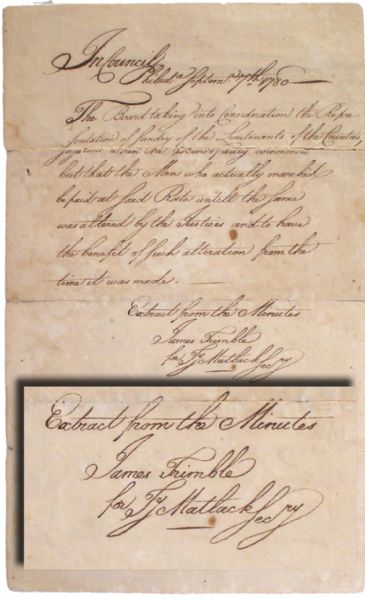 In Council
Philada. Septemr. 7th. 1780
The Board taking into Consideration the Repre
sentation of sundry of the Lieutenants of the Counties,
but that the Men who actually marched
be paid at said Rate untill the same
was altered by the Justices and to have
the benefit of such alteration from the
time it was made.
Extract from the Minutes
James Trimble
for Ty Matlack Secry
Extract from the Minutes
James Trimble
for Ty Matlack Secry